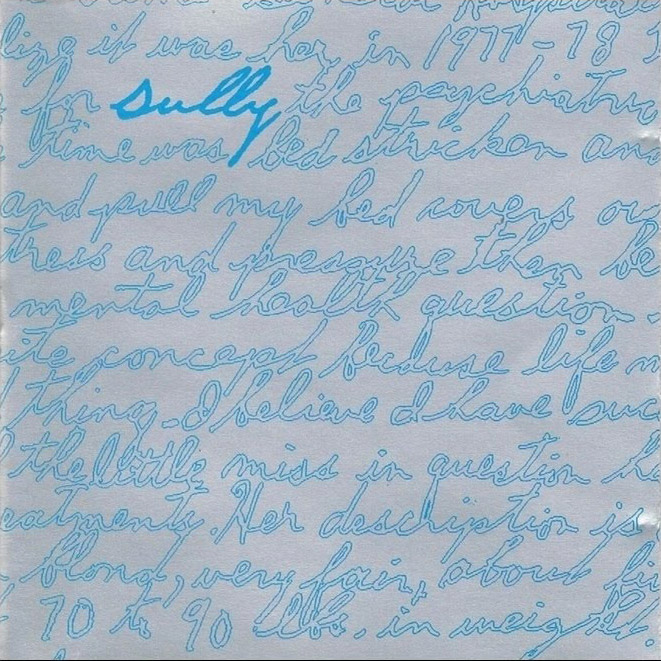 lize it was her in 1977-78
for sully the psychiatric
time was bed stricken and
and pull my bed covers
tress and pressure then be
mental health question
ite concept because life
thing - I believe I have suc
the little miss in question
eatments. Her description is
blond, very fair, about
70 to 90 lbs. in weight.